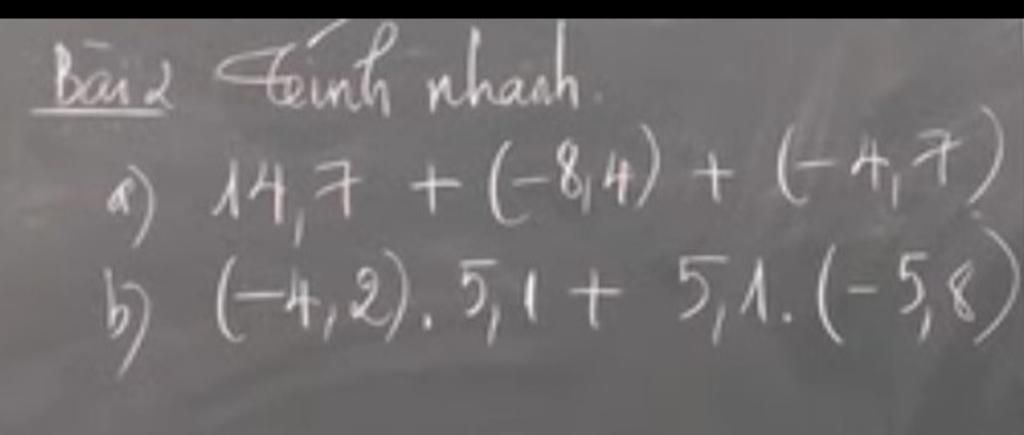 Bài 2 Tính nhanh.
a) 14,7 + (-8,4) + (-4,7)
b) (-4,2). 5,1 + 5,1. (-5,8)